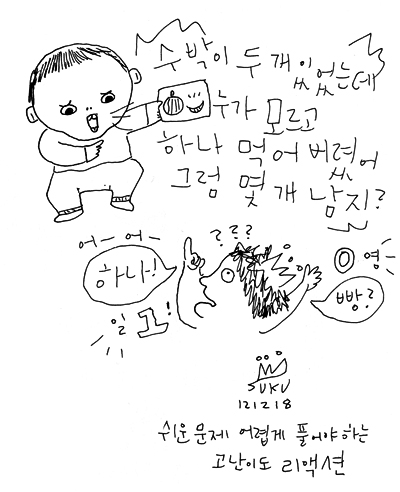 수박이 두 개 있었는데
누가 모르고
하나 먹어 버렸어
그럼 몇 개 남지?
어-어-
하나-!
일
그!
???
영
빵?
SUKU
121218
쉬운 문제 어렵게 풀어야 하는
고난이도 리액션